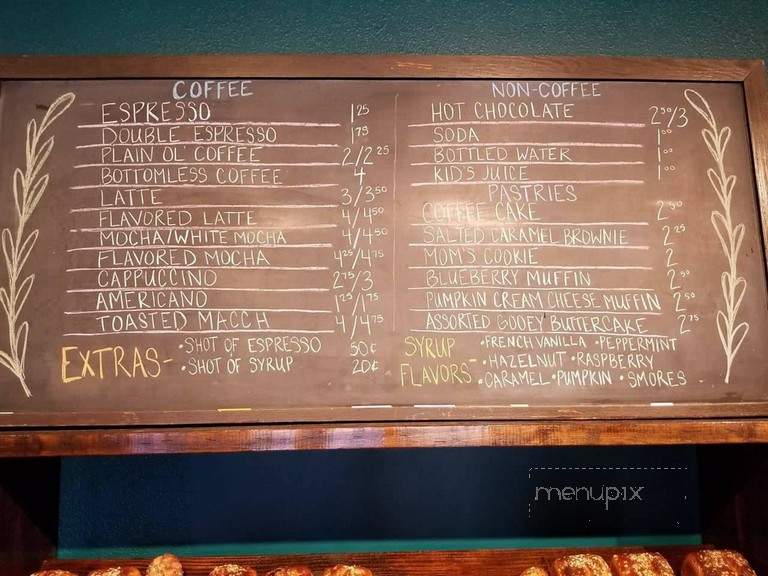 COFFEE
ESPRESSO 1.25
DOUBLE ESPRESSO 1.75
PLAIN OL' COFFEE 2/2.25
BOTTOMLESS COFFEE 4
LATTE 3/3.50
FLAVORED LATTE 4/4.50
MOCHA/WHITE MOCHA 4/4.50
FLAVORED MOCHA 4.25/4.75
CAPPUCCINO 2.75/3
AMERICANO 1.25/1.75
TOASTED MACCH 4/4.75
EXTRAS-
•SHOT OF ESPRESSO 50¢
•SHOT OF SYRUP 20¢
NON-COFFEE
HOT CHOCOLATE 2.50/3
SODA 1.00
BOTTLED WATER 1.00
KID'S JUICE 1.00
PASTRIES
COFFEE CAKE 2.50
SALTED CARAMEL BROWNIE 2.25
MOM'S COOKIE 2
BLUEBERRY MUFFIN 2.50
PUMPKIN CREAM CHEESE MUFFIN 2.50
ASSORTED GOOEY BUTTERCAKE 2.75
SYRUP FLAVORS-
•FRENCH VANILLA •PEPPERMINT
•HAZELNUT •RASPBERRY
•CARAMEL •PUMPKIN •SMORES
menupix